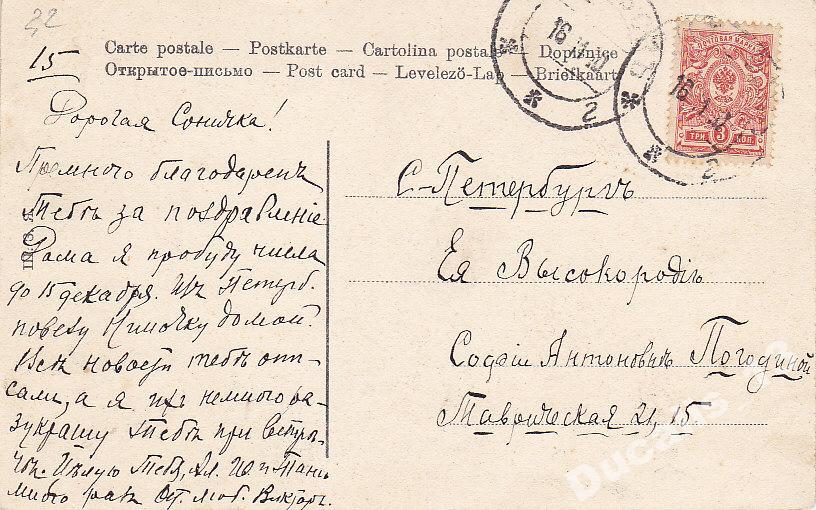 32
15
Carte postale — Postkarte — Cartolina postale — Dopisnice
Открытое-письмо — Post card — Levelező-Lap — Briefkaart
ПОЧТОВАЯ МАРКА
ТРИ 3 КОП.
2
2
Дорогая Соничка!
Премного благодаренъ
Тебѣ за поздравленіе.
Дома я пробуду числа
до 15 декабря. Изъ Петерб.
повезу Нимочку домой.
Всѣ новости тебѣ опи-
сали, а я ихъ немного ра-
зукрашу Тебѣ при встрѣ-
чѣ. Цѣлую Тебя, Ал.
много разъ. От люб. Викторъ.
С-Петербургъ
Ея Высокородію
Софіи Антоновнѣ Погодиной
Таврическая 21, 15